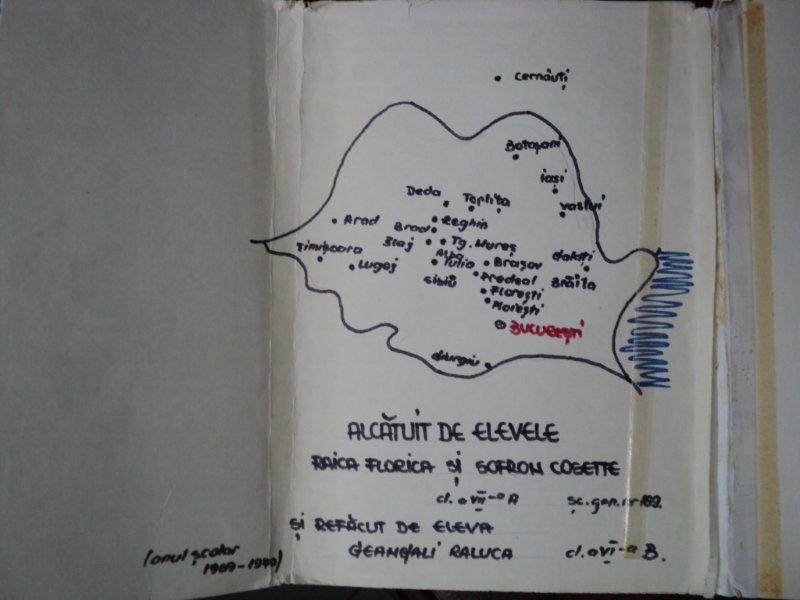 Cernăuți
Botoșani
iași
Vaslui
Deda
Toplița
Arad
Reghin
Brad
Blaj
Tg. Mureș
Timișoara
Alba
Iulia
Lugoj
Brașov
Galați
Sibiu
Predeal
Brăila
Florești
Ploiești
BUCUREȘTI
Giurgiu
ALCĂTUIT DE ELEVELE
RAICA FLORICA ȘI SOFRON COSETTE
cl. a VII-a A șc. gen. nr 189.
ȘI REFĂCUT DE ELEVA
GEANGALI RALUCA cl. a VI-a B.
(anul școlar
1989-1990)